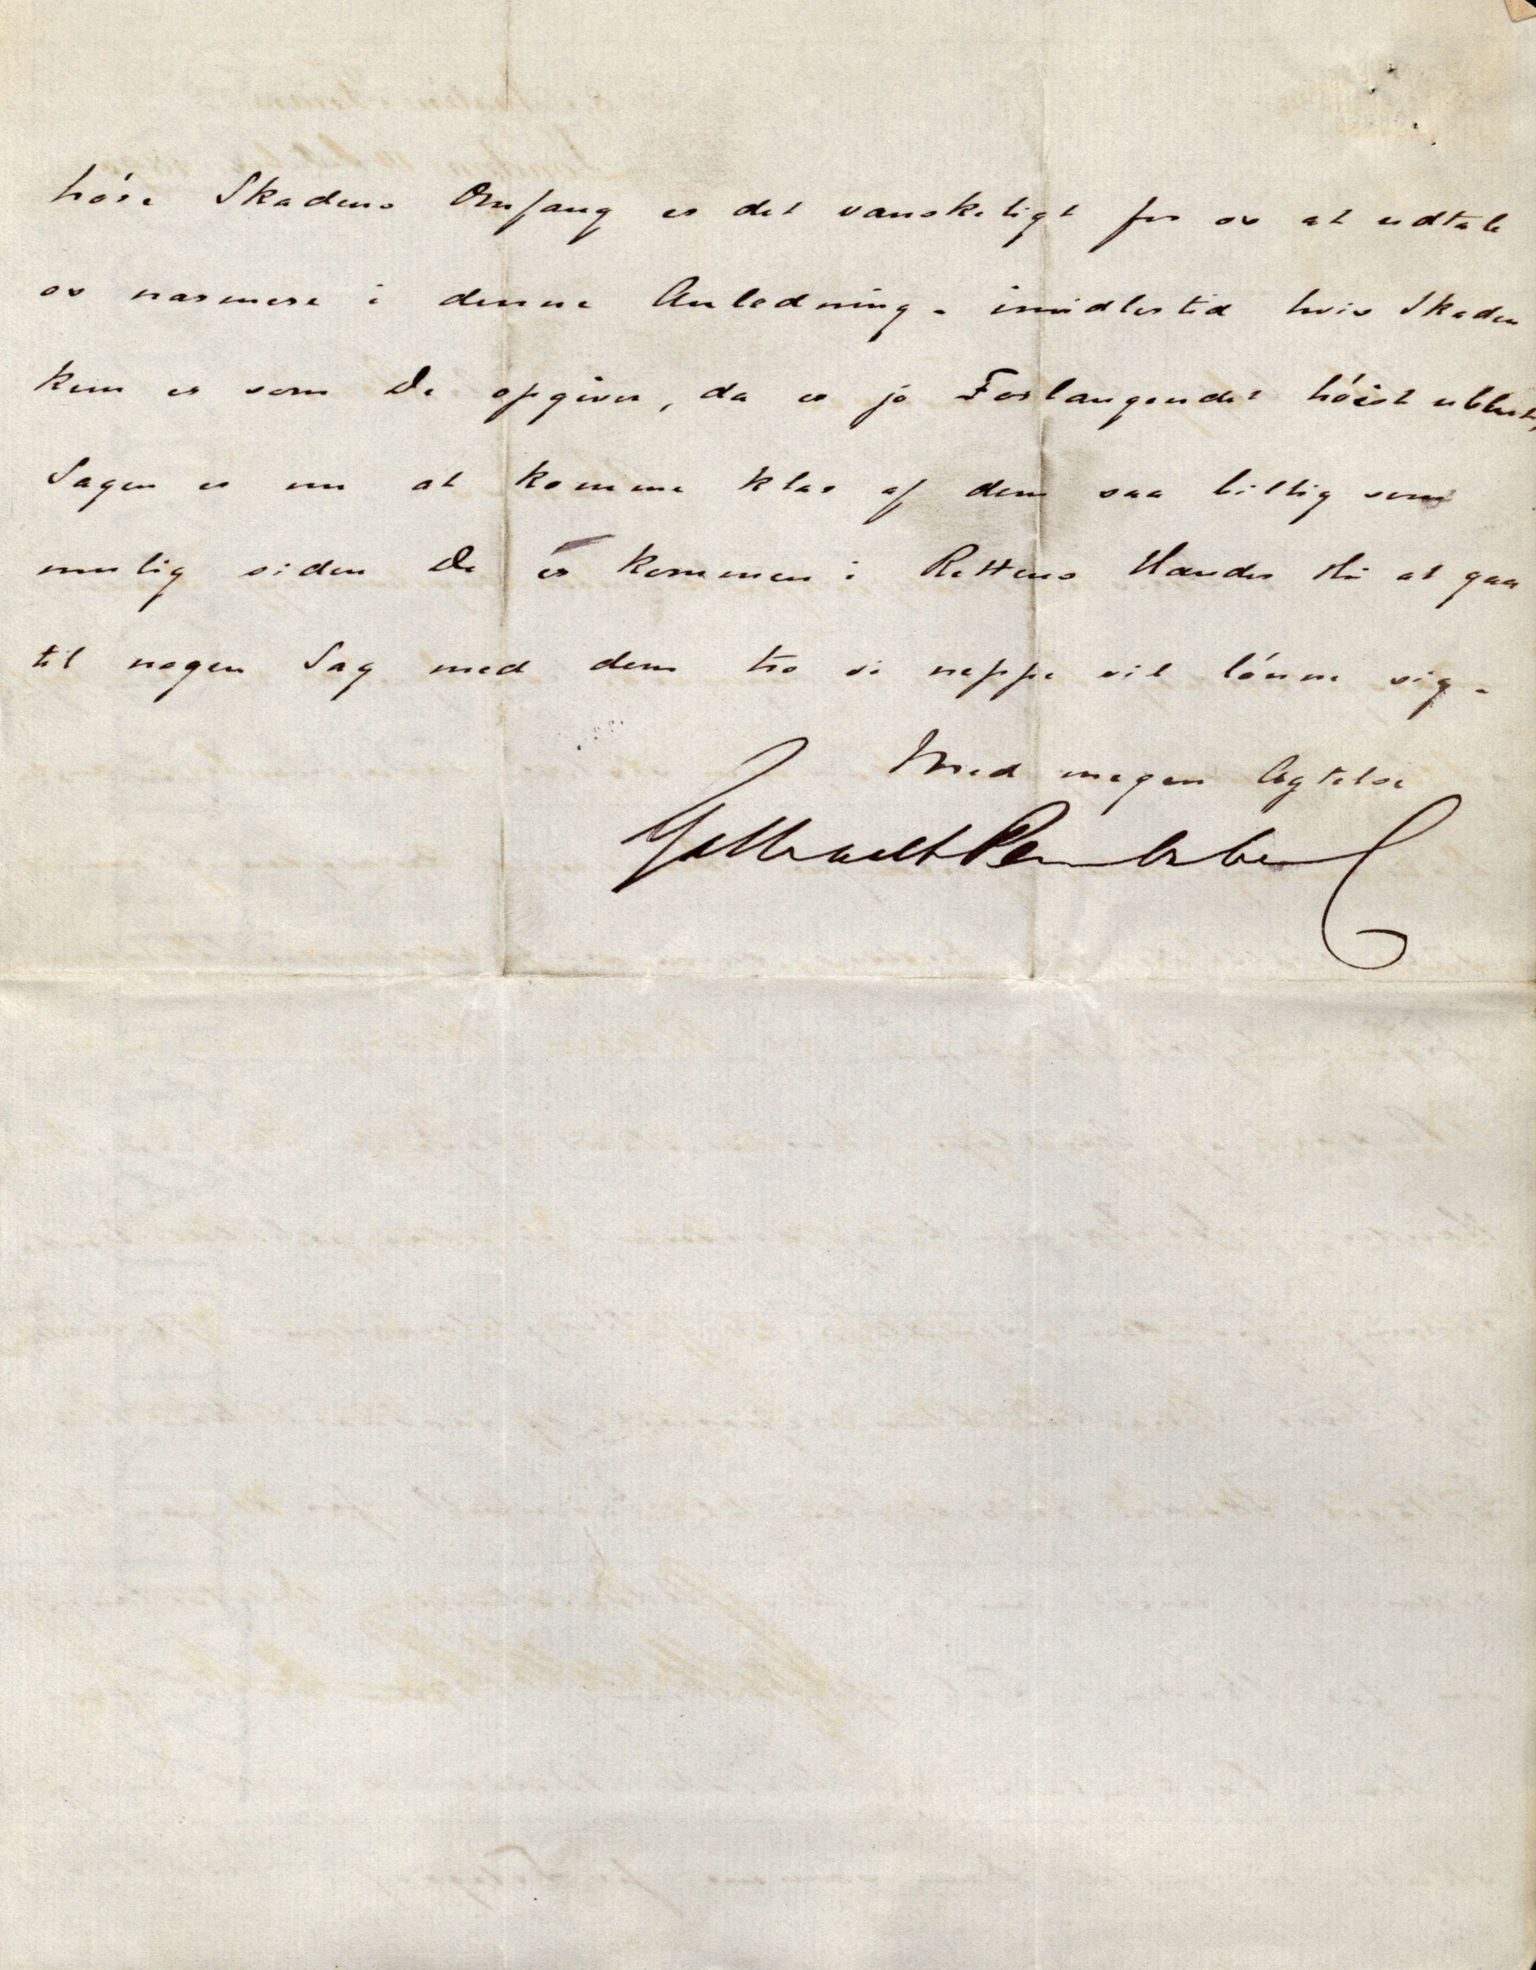 höre Skadens Omfang er det vanskeligt for os at udtale
os nærmere i denne Anledning - imidlertid hvis Skaden
kun er som De opgiver, da er jo Forlangendet höist ublut,
Sagen er nu at komme klar af dem saa billig som
mulig siden De er kommen i Rettens Hænder thi at gaa
til nogen Sag med dem tro vi neppe vil lönne sig -
Med megen Agtelse
Galbraith Pembroke